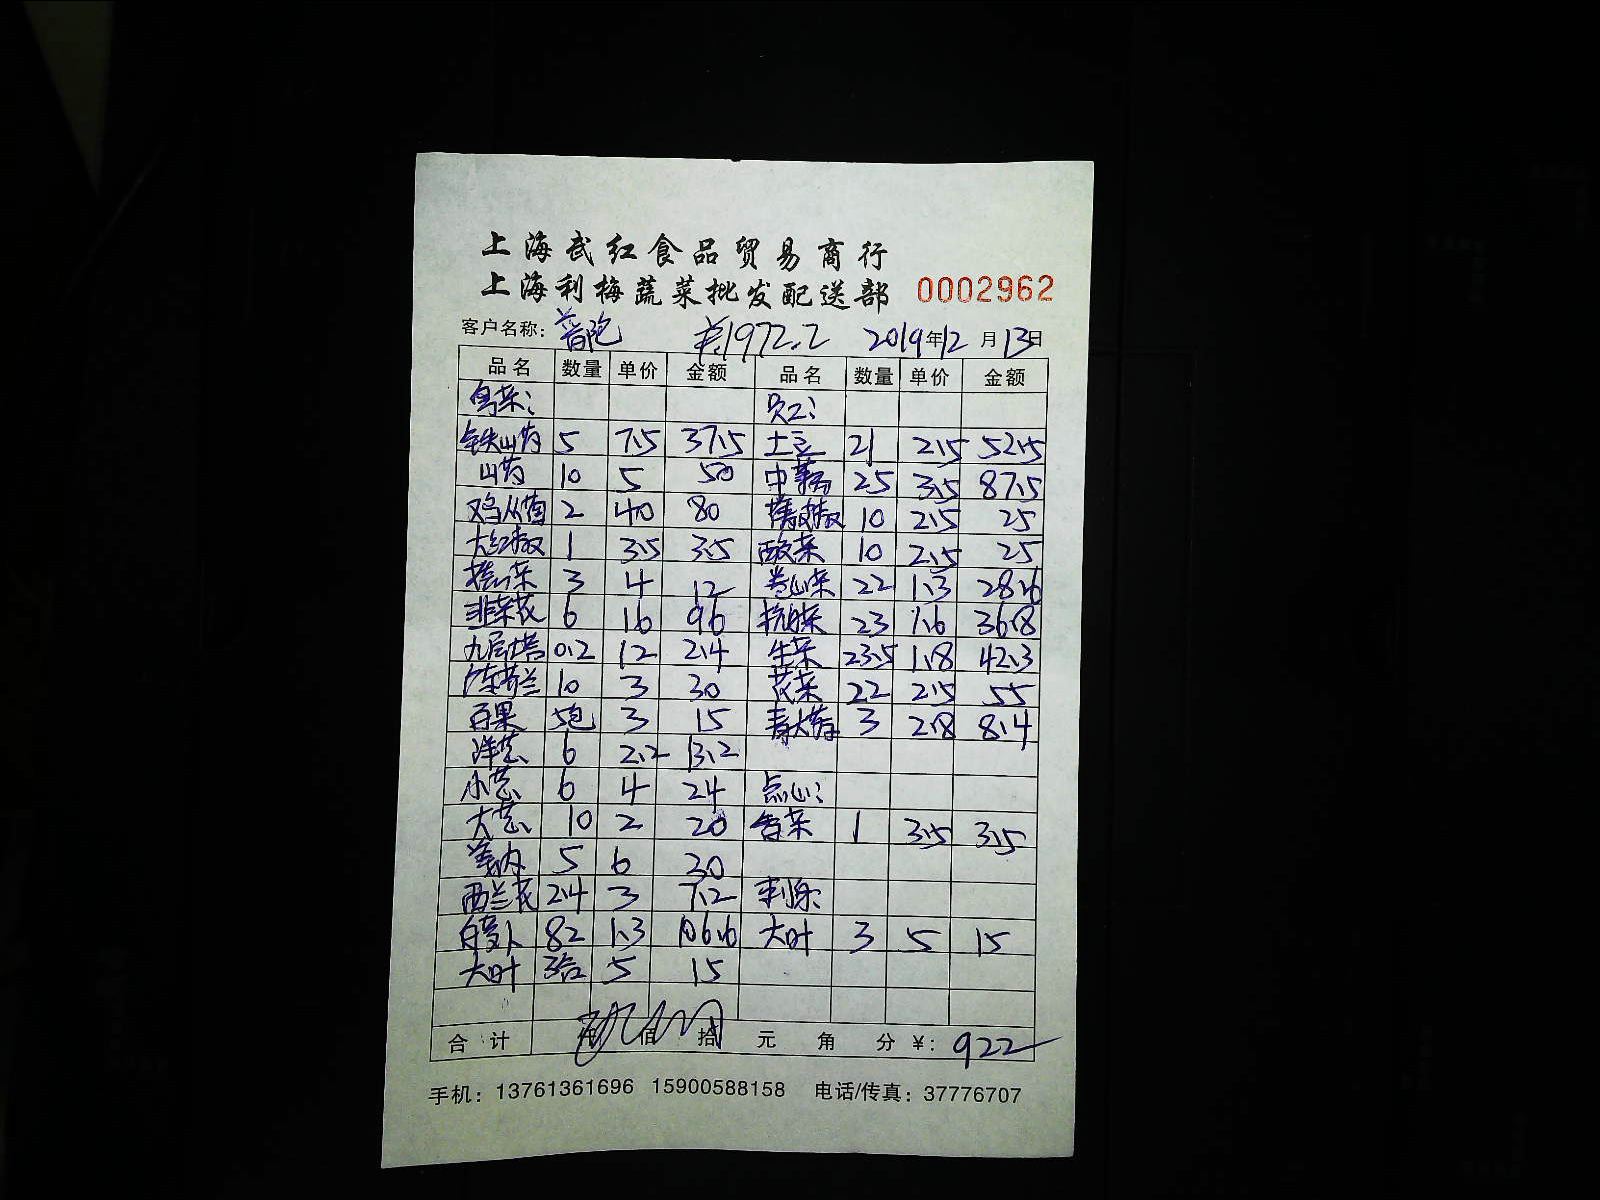 上海武红食品贸易商行
上海利梅蔬菜批发配送部 0002962
客户名称: ¥1972.2 2019年12月13日
品名 数量 单价 金额 品名 数量 单价 金额
员工:
铁山药 5 7.5 37.5 土豆 21 2.5 52.5
山药 10 5 50 中 25 3.5 87.5
鸡从菌 2 40 80 10 2.5 25
大红椒 1 3.5 3.5 酸菜 10 2.5 25
3 4 12 卷心菜 22 1.3 28.6
韭菜花 6 16 96 杭白菜 23 1.6 36.8
九层塔 0.2 12 2.4 生菜 23.5 1.8 42.3
广东芥兰 10 3 30 花菜 22 2.5 55
百果 5包 3 15 青大蒜 3 2.8 8.4
洋葱 6 2.2 13.2
小葱 6 4 24 点心:
大葱 10 2 20 香菜 1 3.5 3.5
姜肉 5 6 30
西兰花 2.4 3 7.2 刺身:
白萝卜 82 1.3 106.6 大叶 3 5 15
大叶 3合 5 15
合计 仟 佰 拾 元 角 分 ¥: 922
手机: 13761361696 15900588158 电话/传真: 37776707